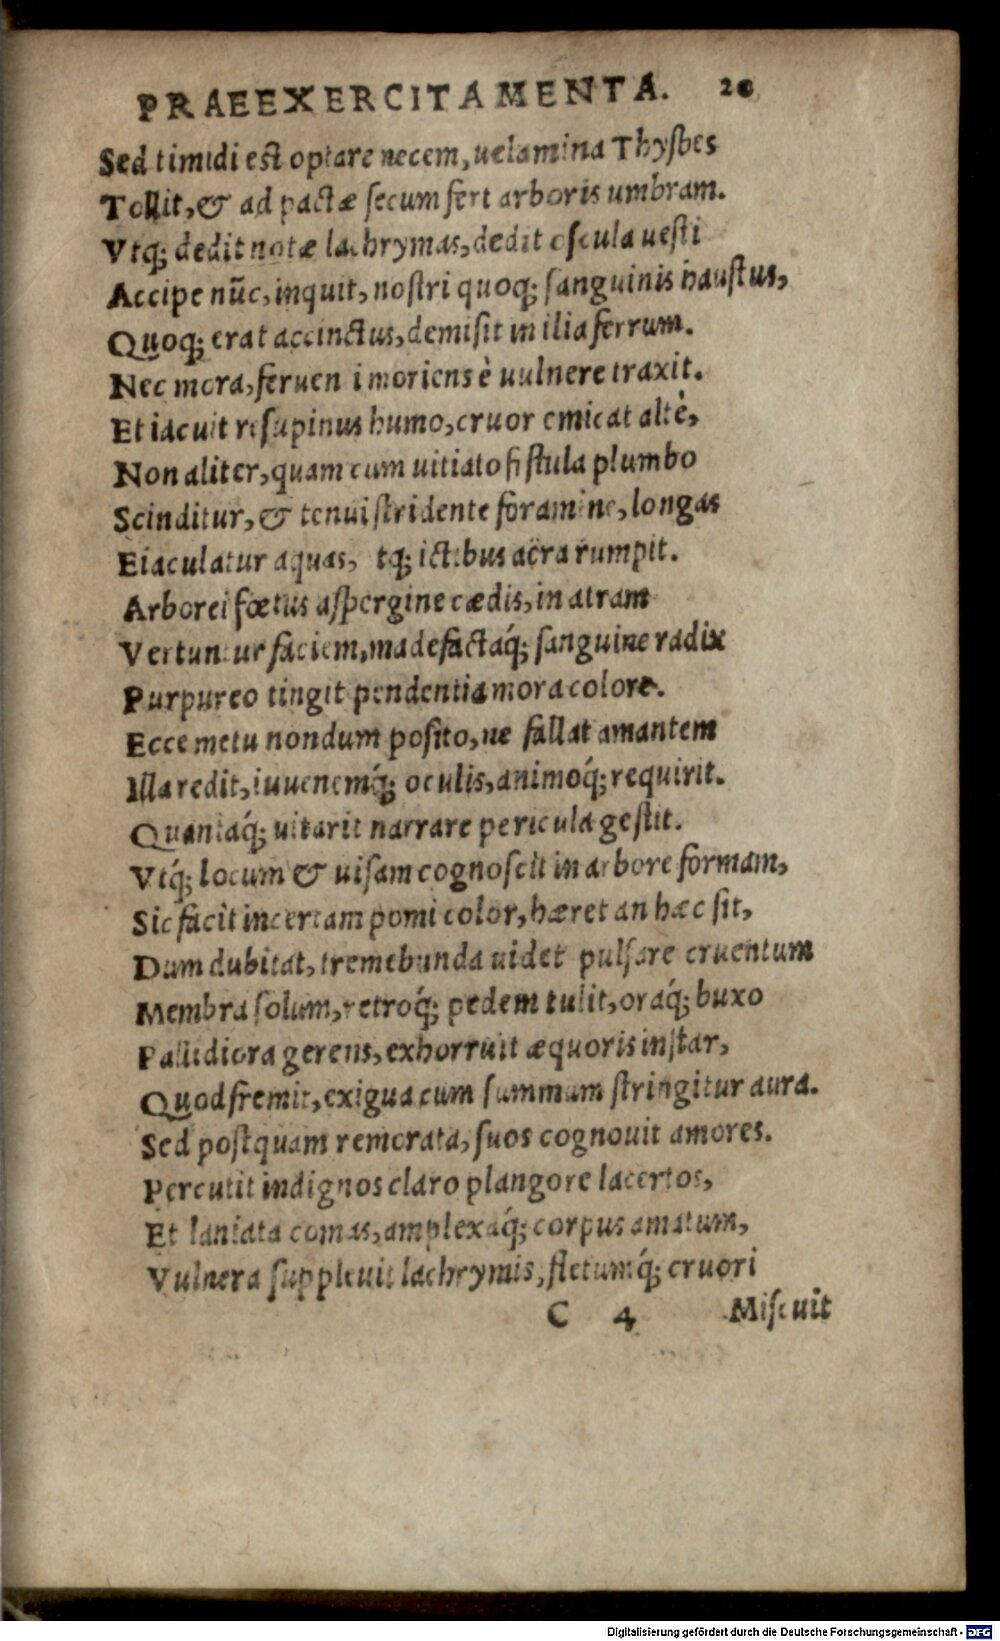 PRAEEXERCITAMENTA. 20
Sed timidi est optare necem, uelamina Thysbes
Tollit, & ad pactæ secum fert arboris umbram.
Vtq; dedit notæ lachrymas, dedit oscula uesti
Accipe nũc, inquit, nostri quoq; sanguinis haustus,
Quoq; erat accinctus, demisit in ilia ferrum.
Nec mora, feruen i moriens è uulnere traxit.
Et iacuit resupinus humo, cruor emicat altè,
Non aliter, quam cum uitiato fistula plumbo
Scinditur, & tenui stridente foramine, longas
Eiaculatur aquas, tq; ictibus aëra rumpit.
Arborei fœtus aspergine cædis, in atram
Vertuntur faciem, madefactaq́; sanguine radix
Purpureo tingit pendentia mora colore.
Ecce metu nondum posito, ne fallat amantem
Illa redit, iuuenemq́; oculis, animoq́; requirit.
Quantaq́; uitarit narrare pericula gestit.
Vtq́; locum & uisam cognoscit in arbore formam,
Sic facit incertam pomi color, hæret an hæc sit,
Dum dubitat, tremebunda uidet pulsare cruentum
Membra solum, retroq́; pedem tulit, oraq́; buxo
Pallidiora gerens, exhorruit æquoris instar,
Quod fremit, exigua cum summum stringitur aura.
Sed postquam remorata, suos cognouit amores.
Percutit indignos claro plangore lacertos,
Et laniata comas, amplexaq́; corpus amatum,
Vulnera suppleuit lachrymis, fletumq́; cruori
C 4 Miscuit
Digitalisierung gefördert durch die Deutsche Forschungsgemeinschaft - DFG